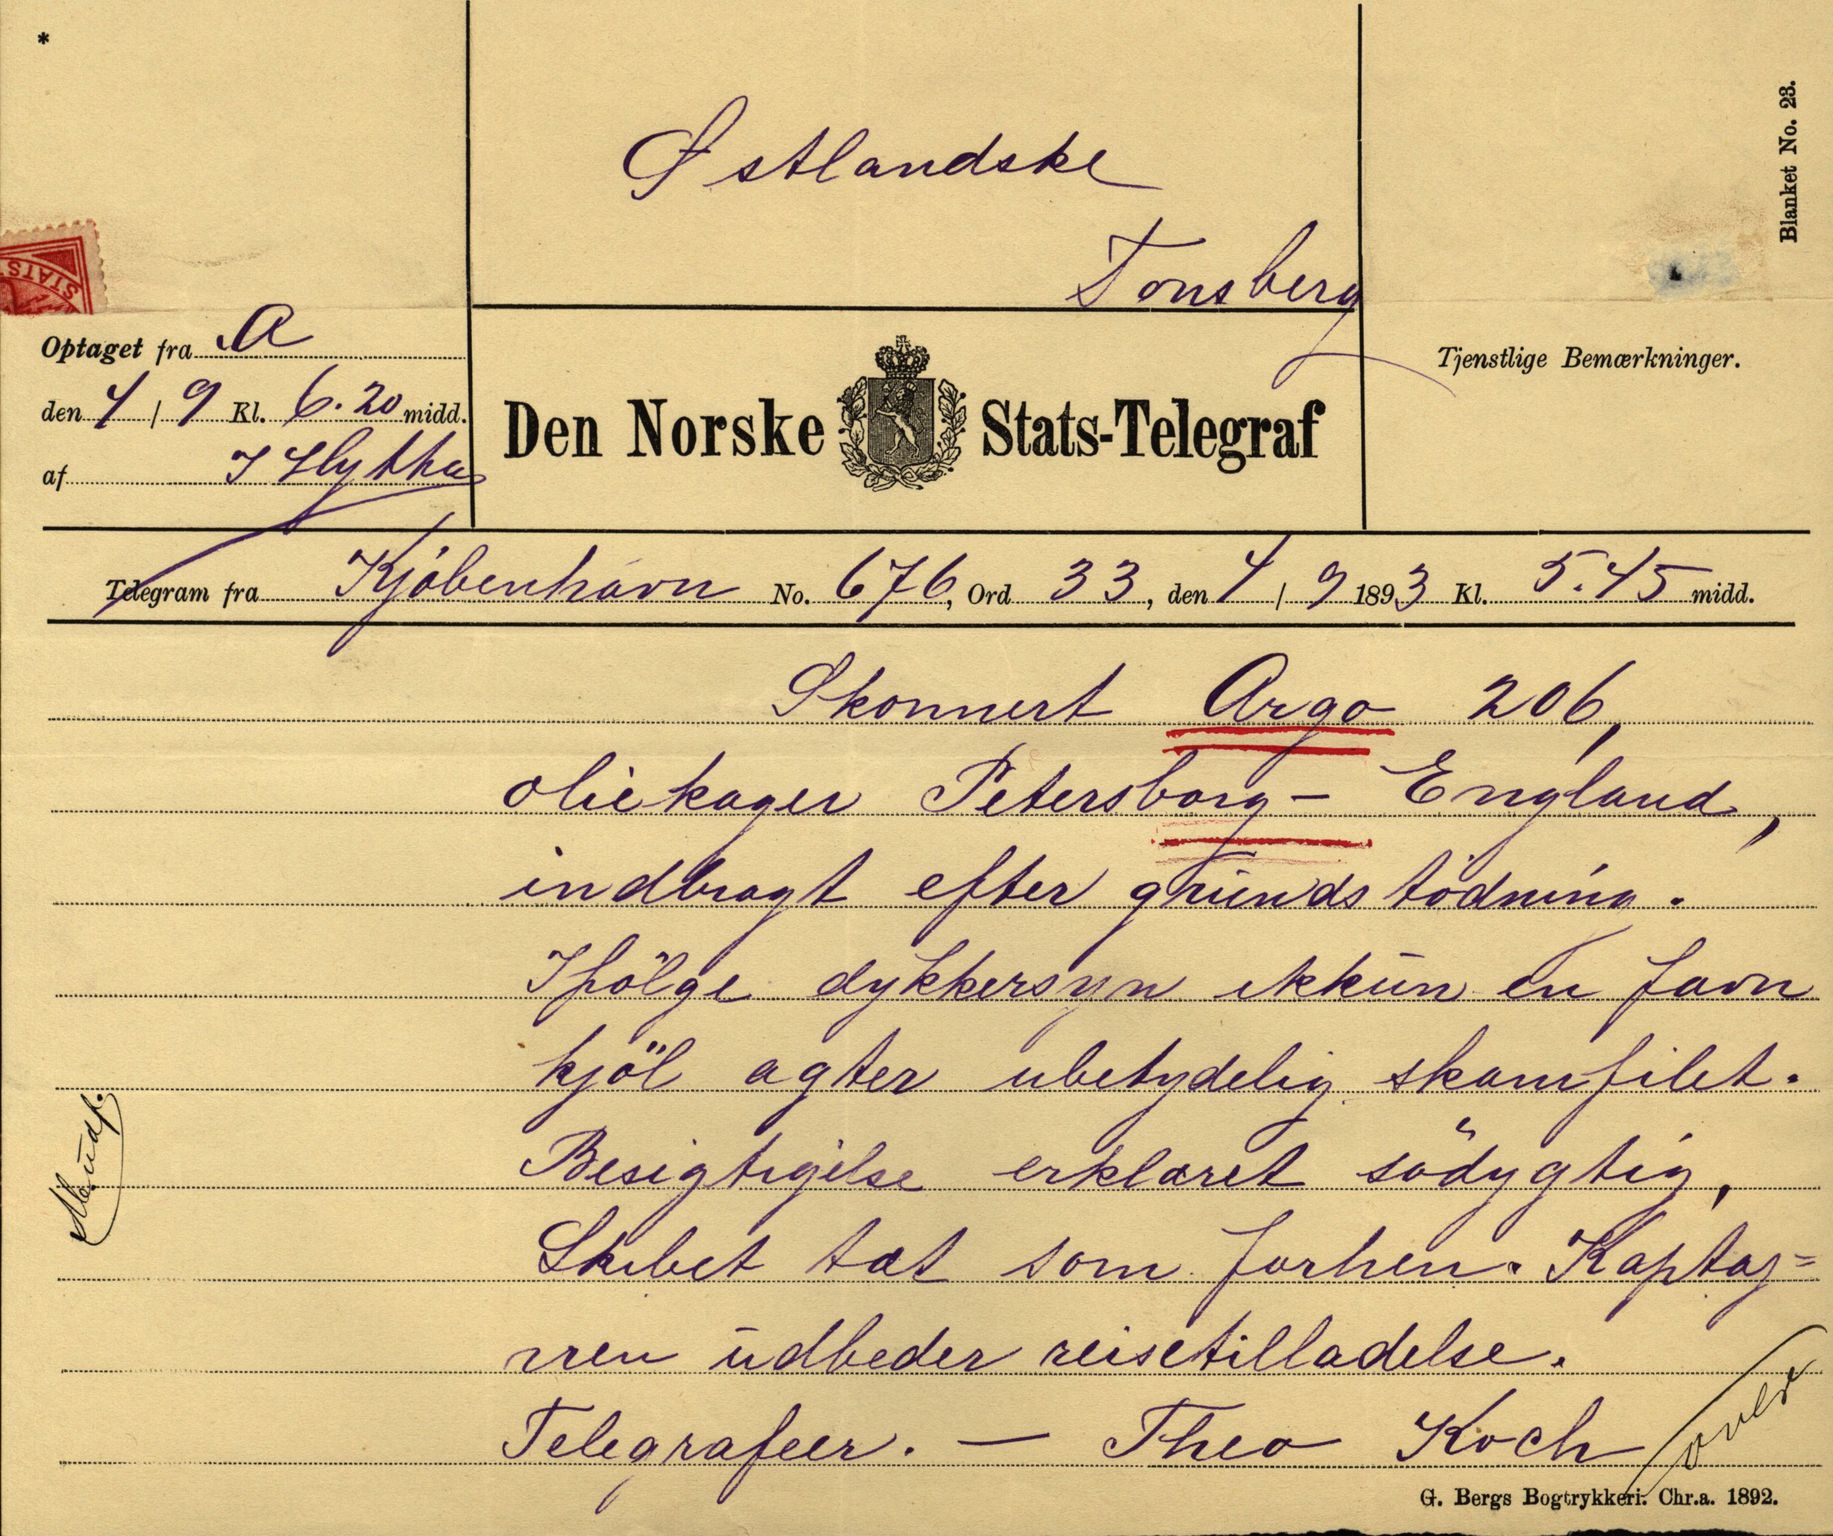 *
Blanket No. 23.
Østlandske
Tonsberg
STATST
Optaget fra A
den 4/9 Kl. 6.20 midd.
af
Den Norske Stats-Telegraf
Tjenstlige Bemærkninger.
Telegram fra Kjöbenhavn No. 676, Ord 33, den 4/9 1893 Kl. 5.45 midd.
Skonnert Argo 206,
oliekager Petersborg - England,
indbragt efter grundstödning.
Ifölge dykkersyn ikkun en favn
kjöl agter ubetydelig skamfilet.
Besigtigelse erklæret södygtig,
Skibet tæt som forhen. Kaptaj=
nen udbeder reisetilladelse.
Telegrafeer. — Theo Koch
G. Bergs Bogtrykkeri. Chr.a. 1892.